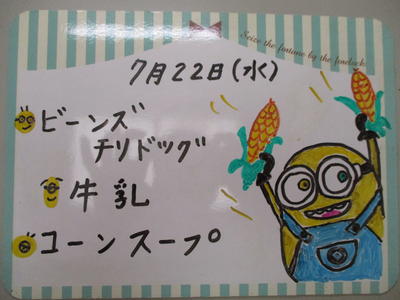 Seize the fortune by the forelock.
7月22日(水)
ビーンズ
チリドッグ
牛乳
コーンスープ